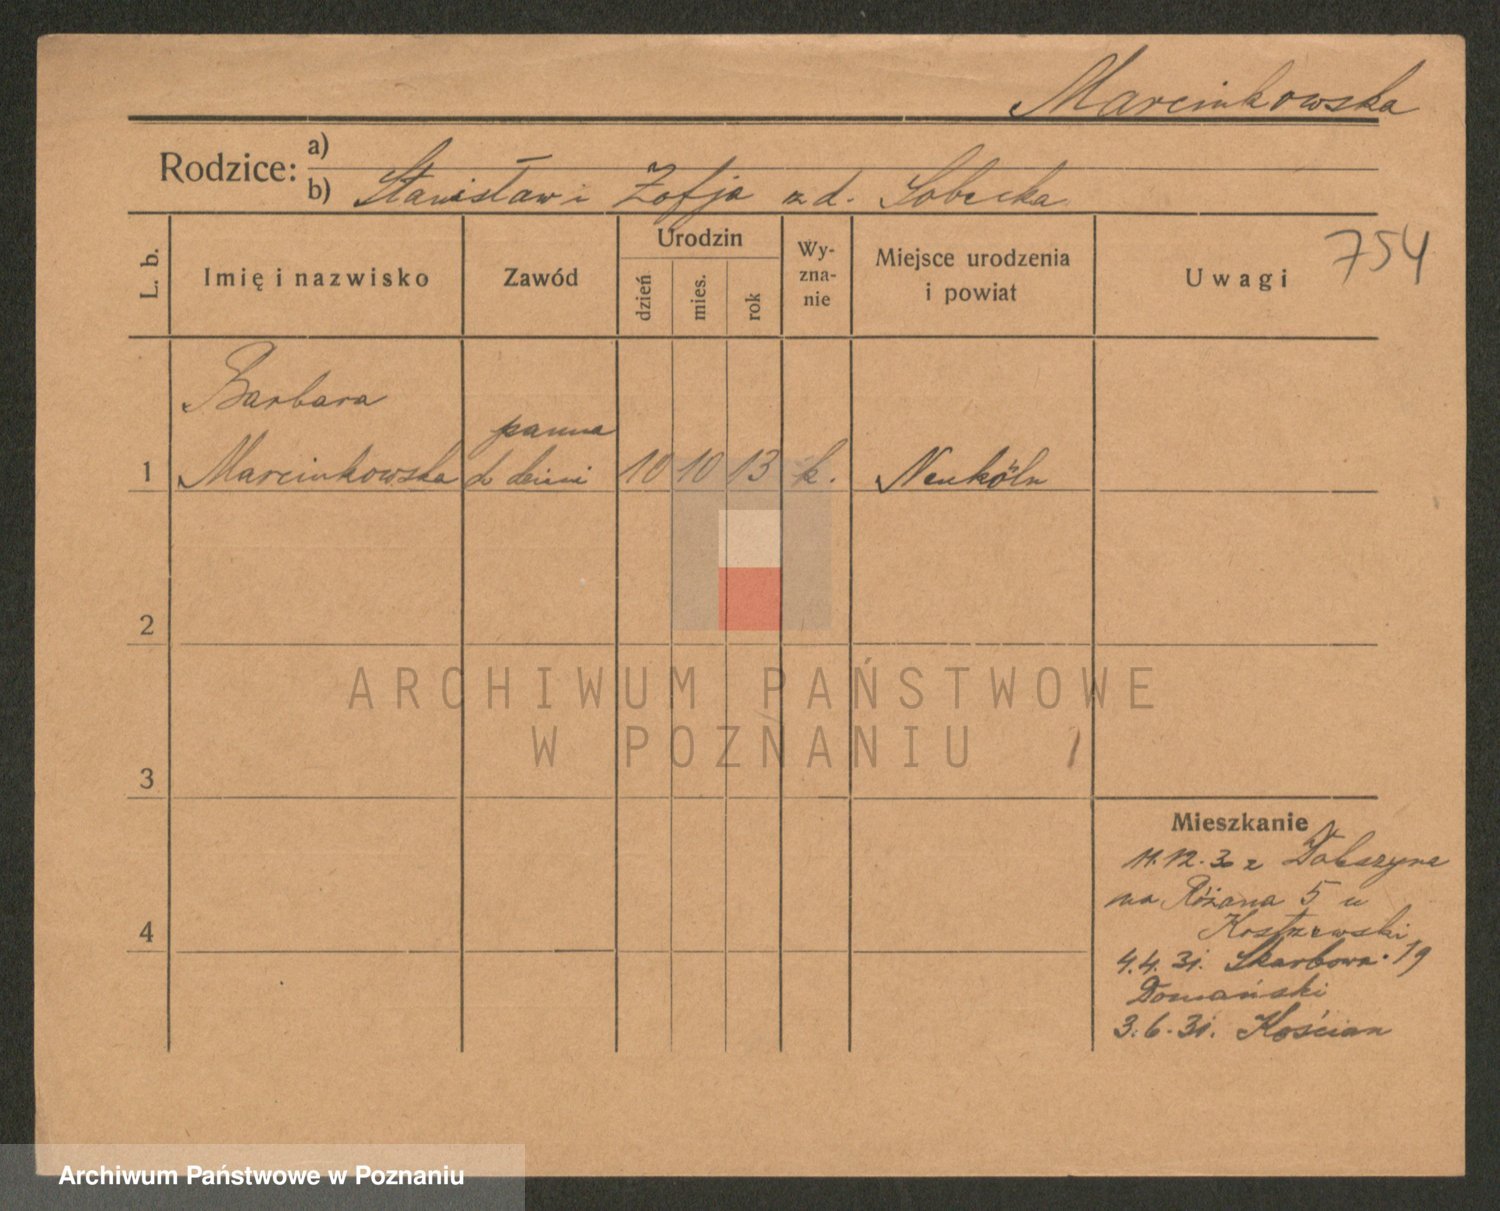 Marcinkowska
Rodzice: a)
b) Stanisław i Zofja z d. Sobecka
754
L. b.
Imię i nazwisko
Zawód
Urodzin
dzień
mies.
rok
Wy-
zna-
nie
Miejsce urodzenia
i powiat
Uwagi
Barbara
panna
1 Marcinkowska do dzieci 10 10 13 k. Neukölln
2
3
4
Mieszkanie
11.12.30 z
na Różana 5 u
Kostrzewski
4.4.31. Skarbowa 19
Domański
3.6.31. Kościan
ARCHIWUM PAŃSTWOWE
W POZNANIU
Archiwum Państwowe w Poznaniu